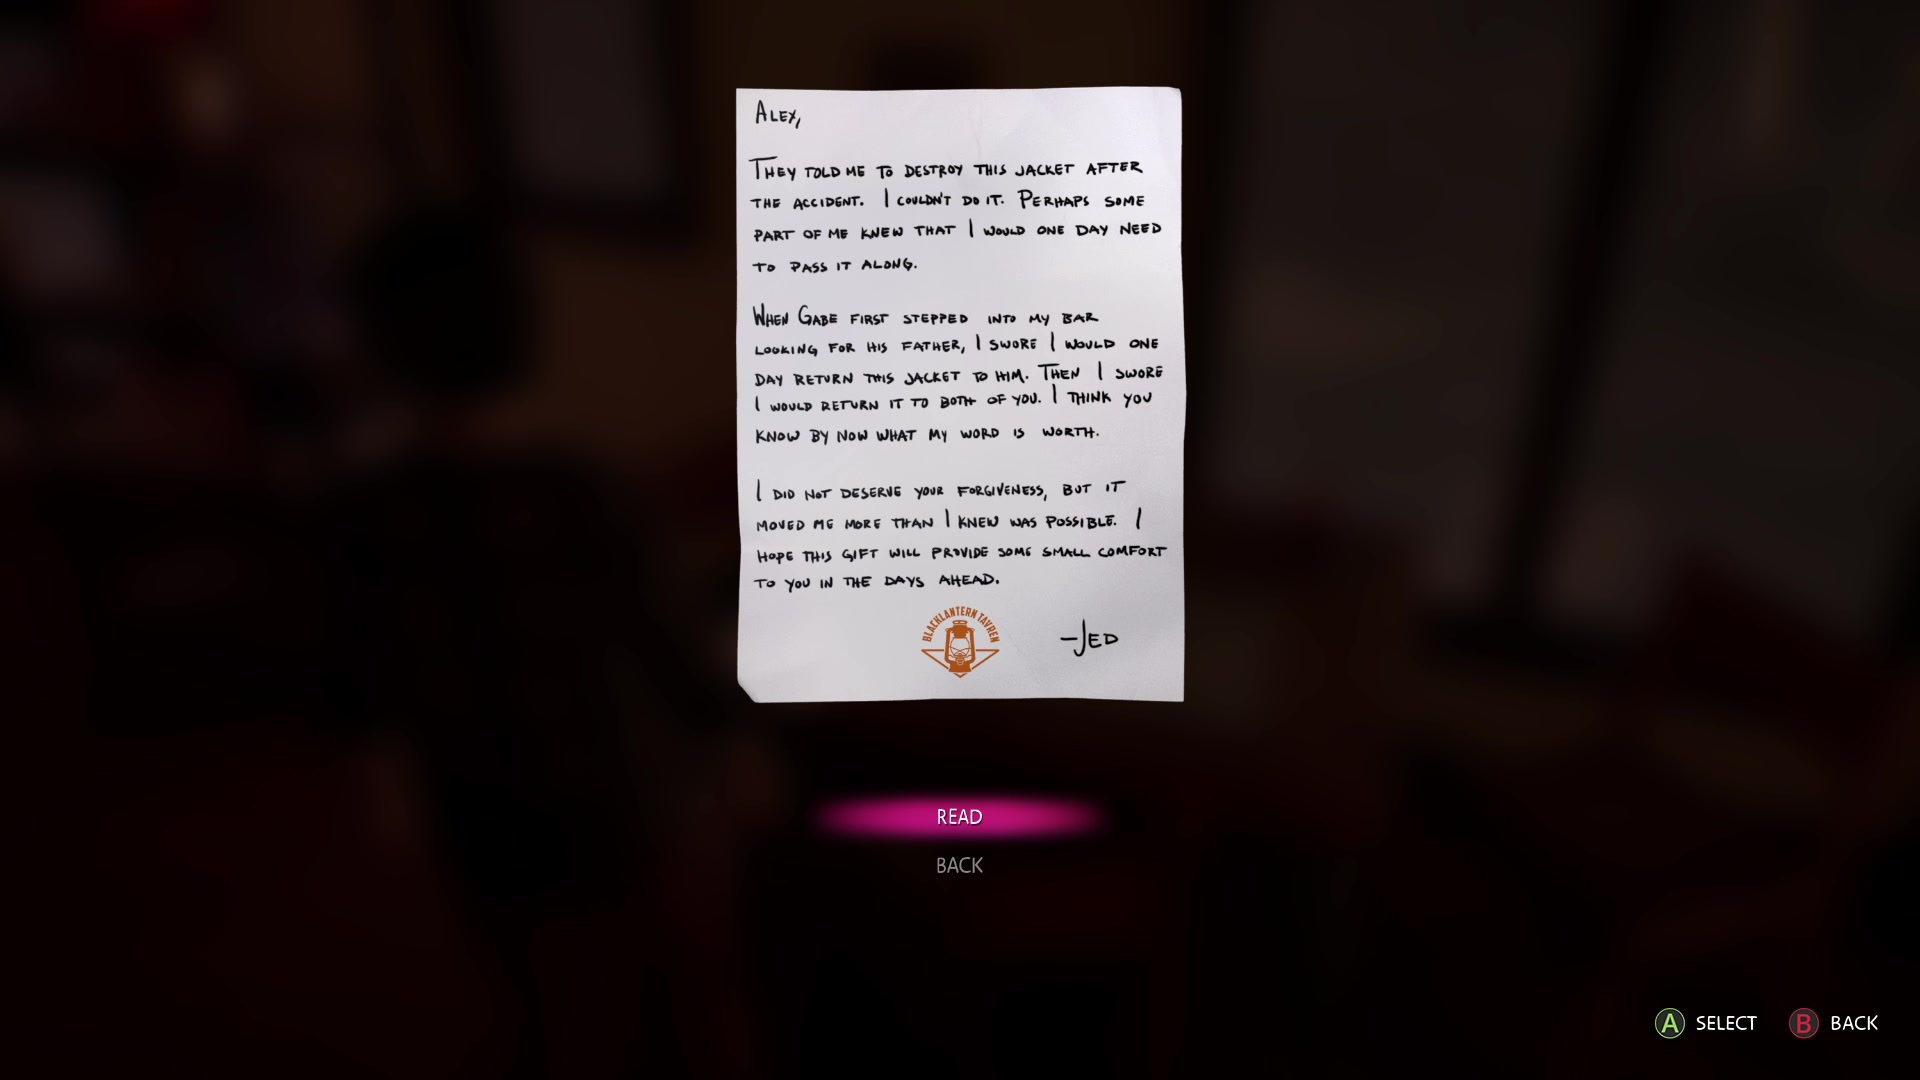 ALEX,
THEY TOLD ME TO DESTROY THIS JACKET AFTER
THE ACCIDENT. I COULDN'T DO IT. PERHAPS SOME
PART OF ME KNEW THAT I WOULD ONE DAY NEED
TO PASS IT ALONG.
WHEN GABE FIRST STEPPED INTO MY BAR
LOOKING FOR HIS FATHER, I SWORE I WOULD ONE
DAY RETURN THIS JACKET TO HIM. THEN I SWORE
I WOULD RETURN IT TO BOTH OF YOU. I THINK YOU
KNOW BY NOW WHAT MY WORD IS WORTH.
I DID NOT DESERVE YOUR FORGIVENESS, BUT IT
MOVED ME MORE THAN I KNEW WAS POSSIBLE. I
HOPE THIS GIFT WILL PROVIDE SOME SMALL COMFORT
TO YOU IN THE DAYS AHEAD.
BLACKLANTERN TAVREN
-JED
READ
BACK
A SELECT B BACK